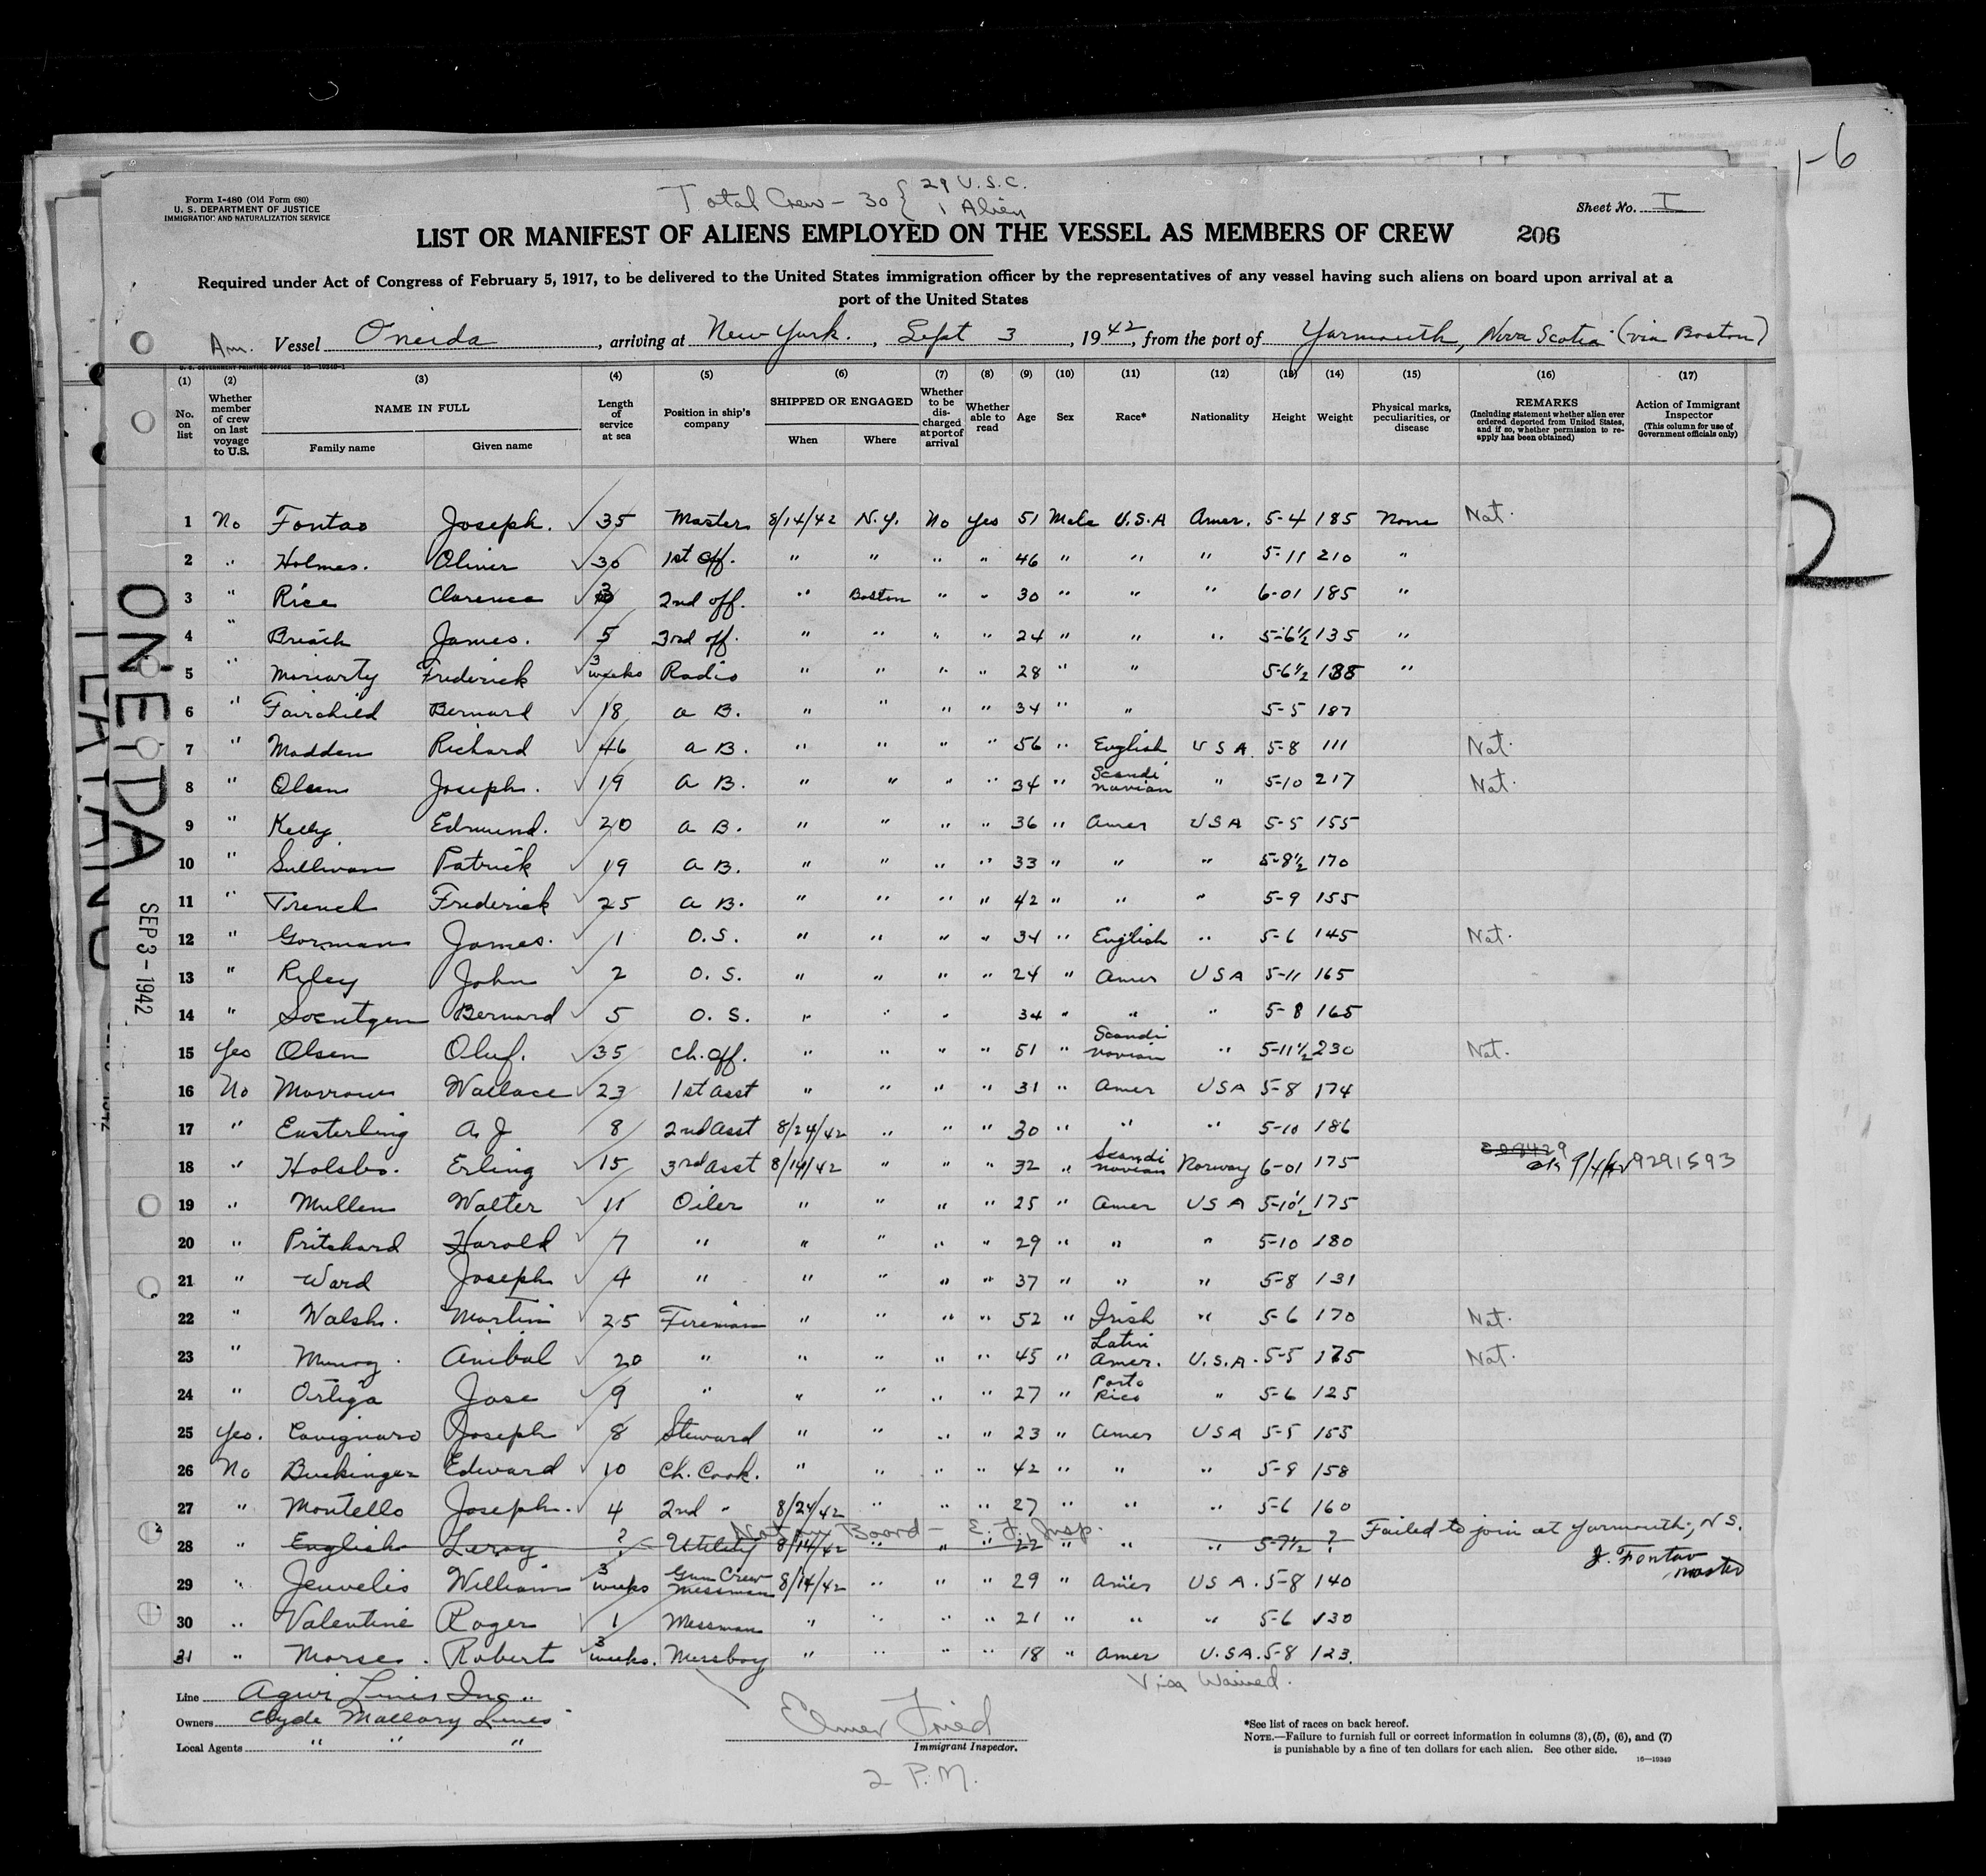 1-6
Total Crew - 30 { 29 U.S.C.
1 Alien
Form I-480 (Old Form 680)
U. S. DEPARTMENT OF JUSTICE
IMMIGRATION AND NATURALIZATION SERVICE
Sheet No. I
LIST OR MANIFEST OF ALIENS EMPLOYED ON THE VESSEL AS MEMBERS OF CREW 206
Required under Act of Congress of February 5, 1917, to be delivered to the United States immigration officer by the representatives of any vessel having such aliens on board upon arrival at a
port of the United States
Am. Vessel Oneida, arriving at New York., Sept 3, 1942, from the port of Yarmouth, Nova Scotia (via Boston)
U. S. GOVERNMENT PRINTING OFFICE 16-19349-1
(1) (2) (3) (4) (5) (6) (7) (8) (9) (10) (11) (12) (13) (14) (15) (16) (17)
No. on list
Whether member of crew on last voyage to U.S.
NAME IN FULL
Family name Given name
Length of service at sea
Position in ship's company
SHIPPED OR ENGAGED
When Where
Whether to be discharged at port of arrival
Whether able to read
Age
Sex
Race*
Nationality
Height
Weight
Physical marks, peculiarities, or disease
REMARKS
(Including statement whether alien ever ordered deported from United States, and if so, whether permission to reapply has been obtained)
Action of Immigrant Inspector
(This column for use of Government officials only)
1 No Fontao Joseph. 35 Master 8/14/42 N.Y. No Yes 51 Male U.S.A Amer. 5-4 185 None Nat.
2 " Holmes. Oliver 30 1st Off. " " " " 46 " " " 5-11 210 "
3 " Rice Clarence 3 2nd off. " Boston " " 30 " " " 6-01 185 "
4 " James. 5 3rd off. " " " " 24 " " " 5-6½ 135 "
5 " Moriarty Frederick 3 weeks Radio " " " " 28 " " 5-6½ 135 "
6 " Fairchild Bernard 18 a B. " " " " 34 " " 5-5 187
7 " Madden Richard 46 a B. " " " " 56 " English U S A 5-8 111 Nat.
8 " Olsen Joseph. 19 a B. " " " " 34 " Scandinavian " 5-10 217 Nat.
9 " Kelly Edmund. 20 a B. " " " " 36 " Amer USA 5-5 155
10 " Sullivan Patrick 19 a B. " " " " 33 " " " 5-8½ 170
11 " Trench Frederick 25 a B. " " " " 42 " " " 5-9 155
12 " Gorman James. 1 O.S. " " " " 34 " English " 5-6 145 Nat.
13 " Riley John 2 O. S. " " " " 24 " Amer USA 5-11 165
14 " Soentgen Bernard 5 O. S. " " " 34 " " " 5-8 165
15 Yes Olsen Oluf. 35 Ch. off. " " " " 51 " Scandinavian " 5-11½ 230 Nat.
16 No Morrow Wallace 23 1st asst " " " " 31 " Amer USA 5-8 174
17 " Easterling A. J 8 2nd asst 8/24/42 " " " 30 " " " 5-10 186
18 " Holsbo. Erling 15 3rd asst 8/14/42 " " " 32 " Scandinavian Norway 6-01 175 9/4/42 9291593
19 " Mullen Walter 11 Oiler " " " " 25 " Amer USA 5-10½ 175
20 " Pritchard Harold 7 " " " " " 29 " " " 5-10 180
21 " Ward Joseph 4 " " " " " 37 " " " 5-8 131
22 " Walsh. Martin 25 Fireman " " " " 52 " Irish " 5-6 170 Nat.
23 " Anibal 20 " " " " " 45 " Latin Amer. U.S.A. 5-5 175 Nat.
24 " Ortiga Jose 9 " " " " " 27 " Porto Rico " 5-6 125
25 Yes. Cavignaro Joseph 8 Steward " " " " 23 " Amer USA 5-5 155
26 No Buckinger Edward 10 Ch. Cook. " " " " 42 " " " 5-8 158
27 " Montello Joseph. 4 2nd " 8/24/42 " " " 27 " " " 5-6 160
Not on Board - E. F. Insp.
28 " English Leroy ? Utility 8/14/42 " " " 22 " " " 5-7½ ? Failed to join at Yarmouth, N.S.
J. Fontao
master
29 " Jeuvelis William 3 weeks Gun Crew Messman 8/14/42 " " " 29 " Amer USA. 5-8 140
30 " Valentine Roger 1 Messman " " " " 21 " " " 5-6 130
31 " Morse. Robert 3 weeks. Messboy " " " " 18 " Amer U.S.A. 5-8 123.
Visa Waived.
Line Agwi Lines Inc.
Owners Clyde Mallory Lines
Local Agents " " "
Elmer Fried
Immigrant Inspector.
2 P.M.
*See list of races on back hereof.
NOTE.—Failure to furnish full or correct information in columns (3), (5), (6), and (7)
is punishable by a fine of ten dollars for each alien. See other side.
16-19349
ONEIDA
SEP 3-1942
2